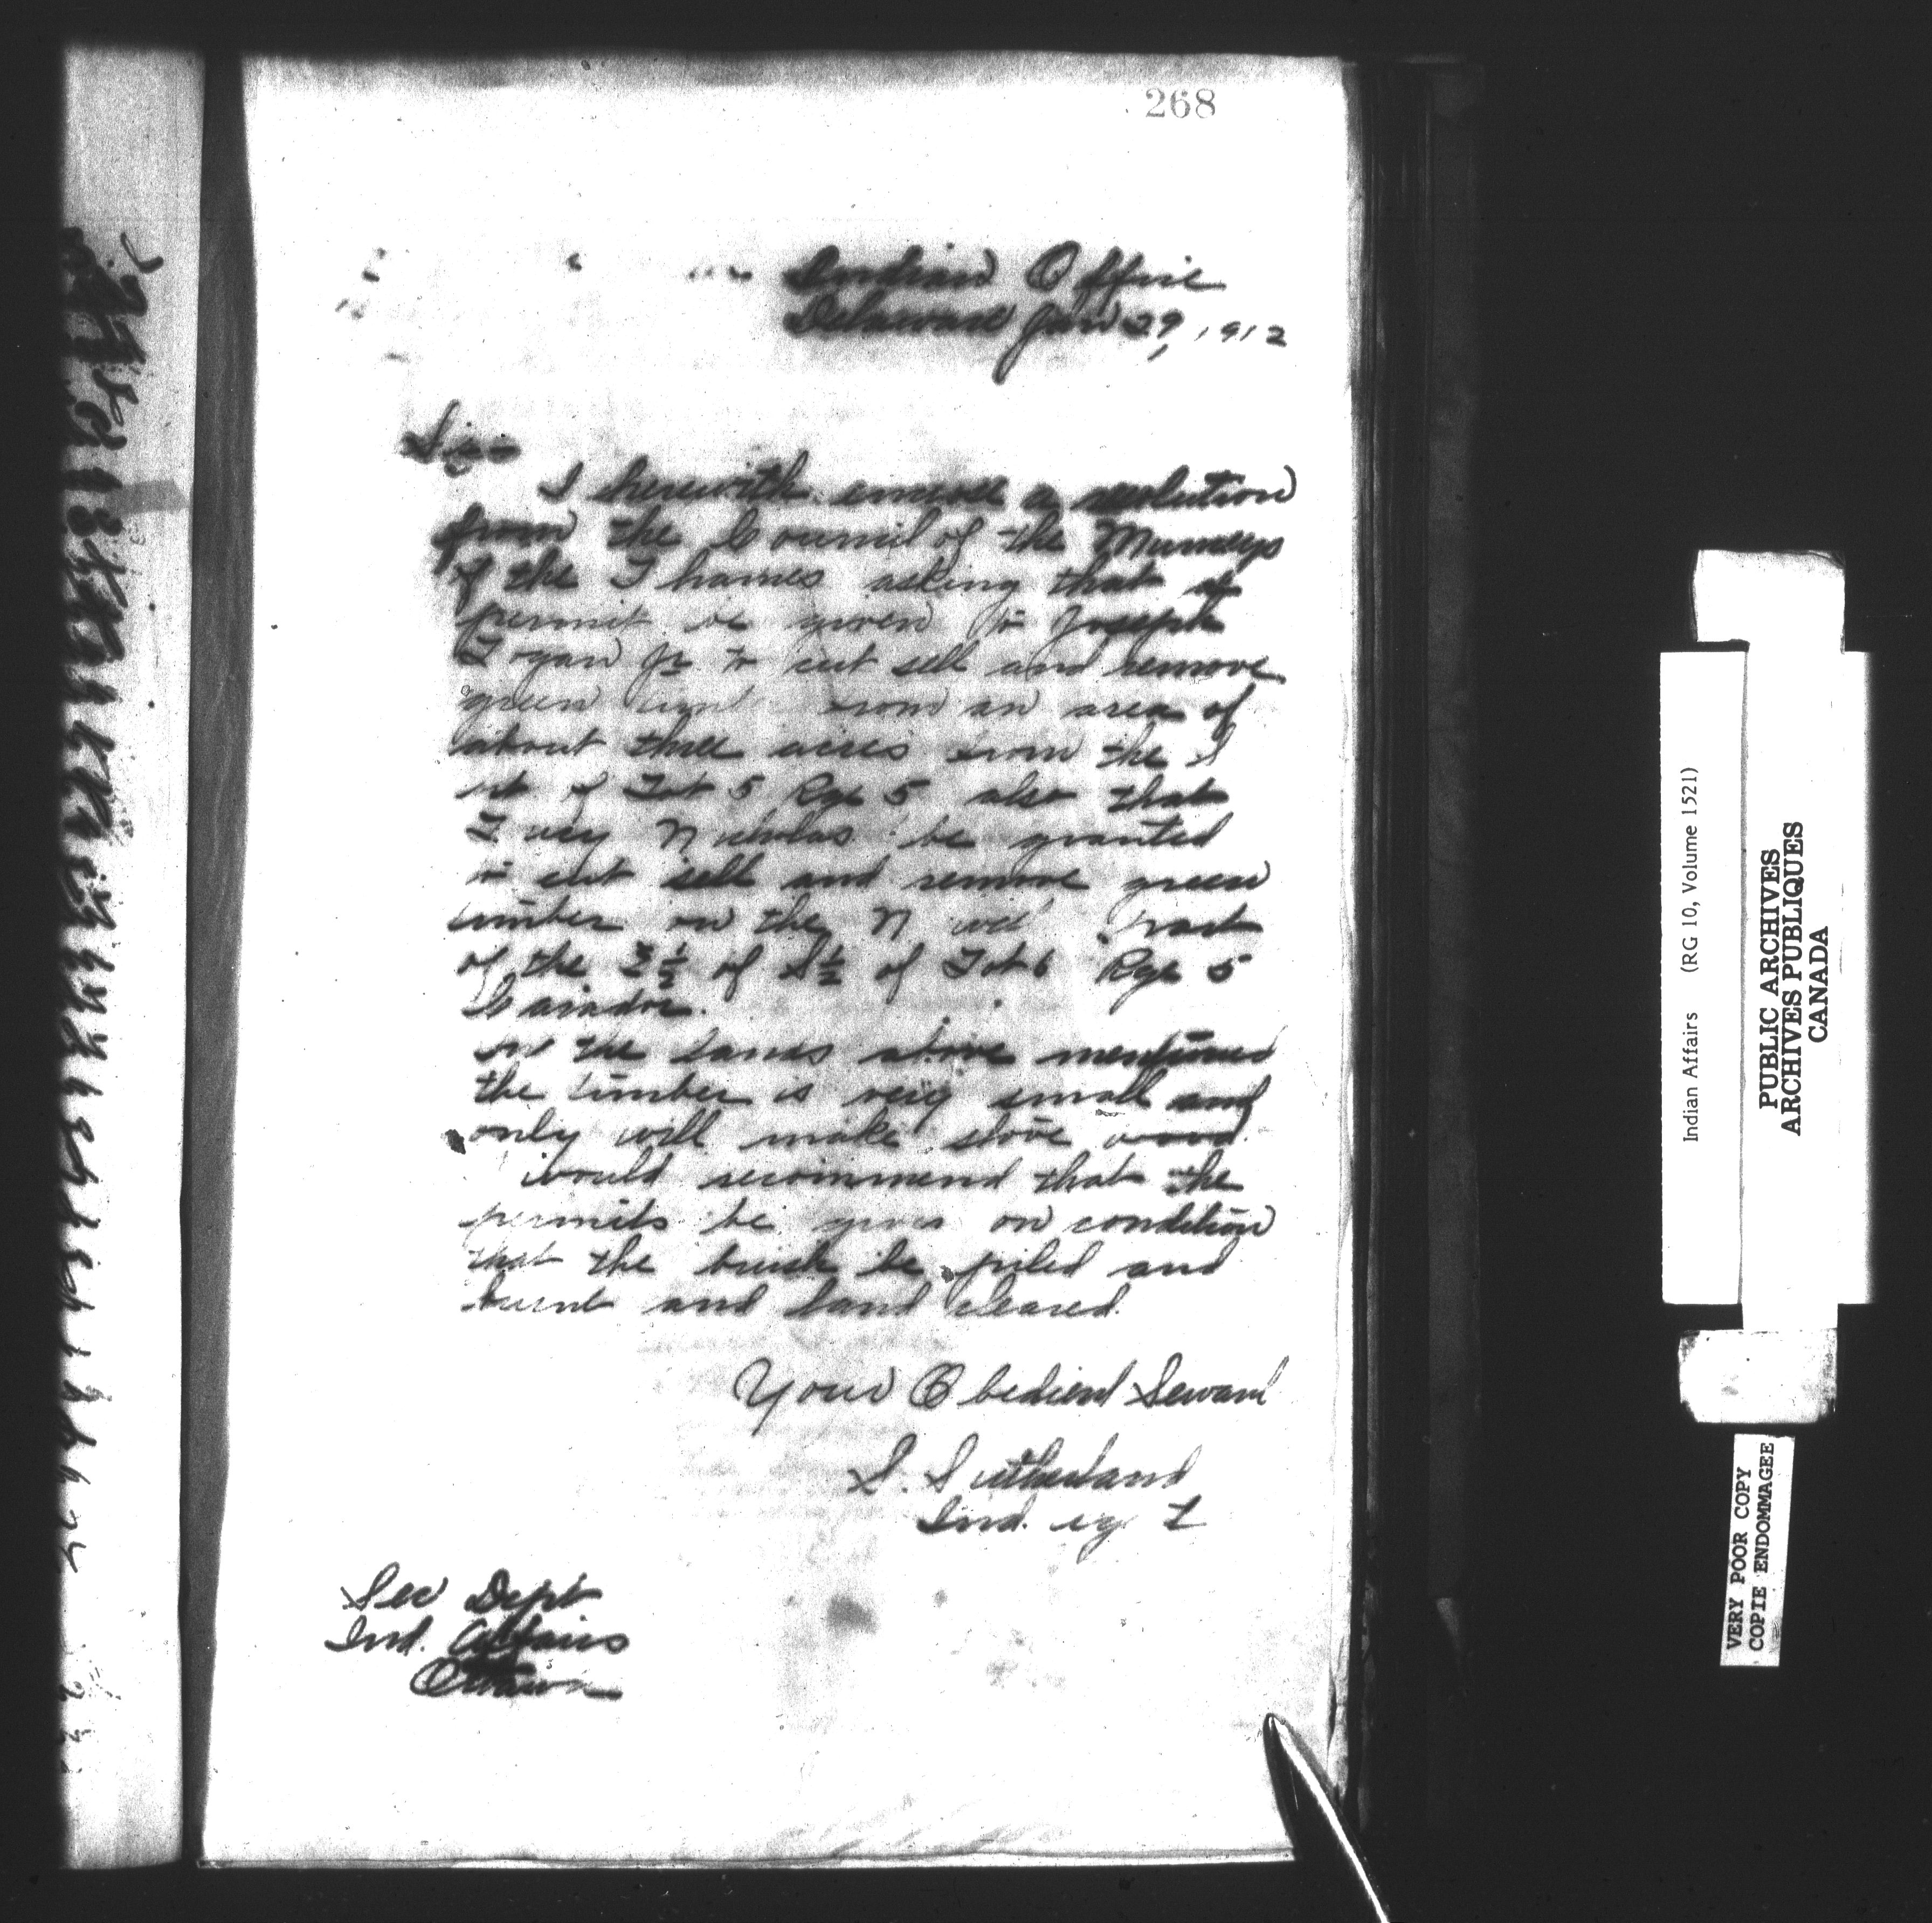 268
Indian Office
Delaware Jan 29, 1912
Sir
I herewith enclose a resolution
from the Council of the Munceys
of the Thames asking that a
permit be given to Joseph
Logan Jr to cut sell and remove
green from an area of
about three acres from the S
of Lot 5 Rge 5 also that
Nicholas be granted
to cut sell and remove green
timber on the N
of the ½ of S½ of Lot 6 Rge 5
Caradoc.
on the lands above mentioned
the timber is very small and
only will make stove wood.
would recommend that the
permits be given on condition
that the brush be piled and
burnt and land cleared.
Your Obedient Servant
S. Sutherland
Ind. Agt
Sec Dept
Ind. Affairs
Ottawa
Indian Affairs (RG 10, Volume 1521)
PUBLIC ARCHIVES
ARCHIVES PUBLIQUES
CANADA
VERY POOR COPY
COPIE ENDOMMAGEE